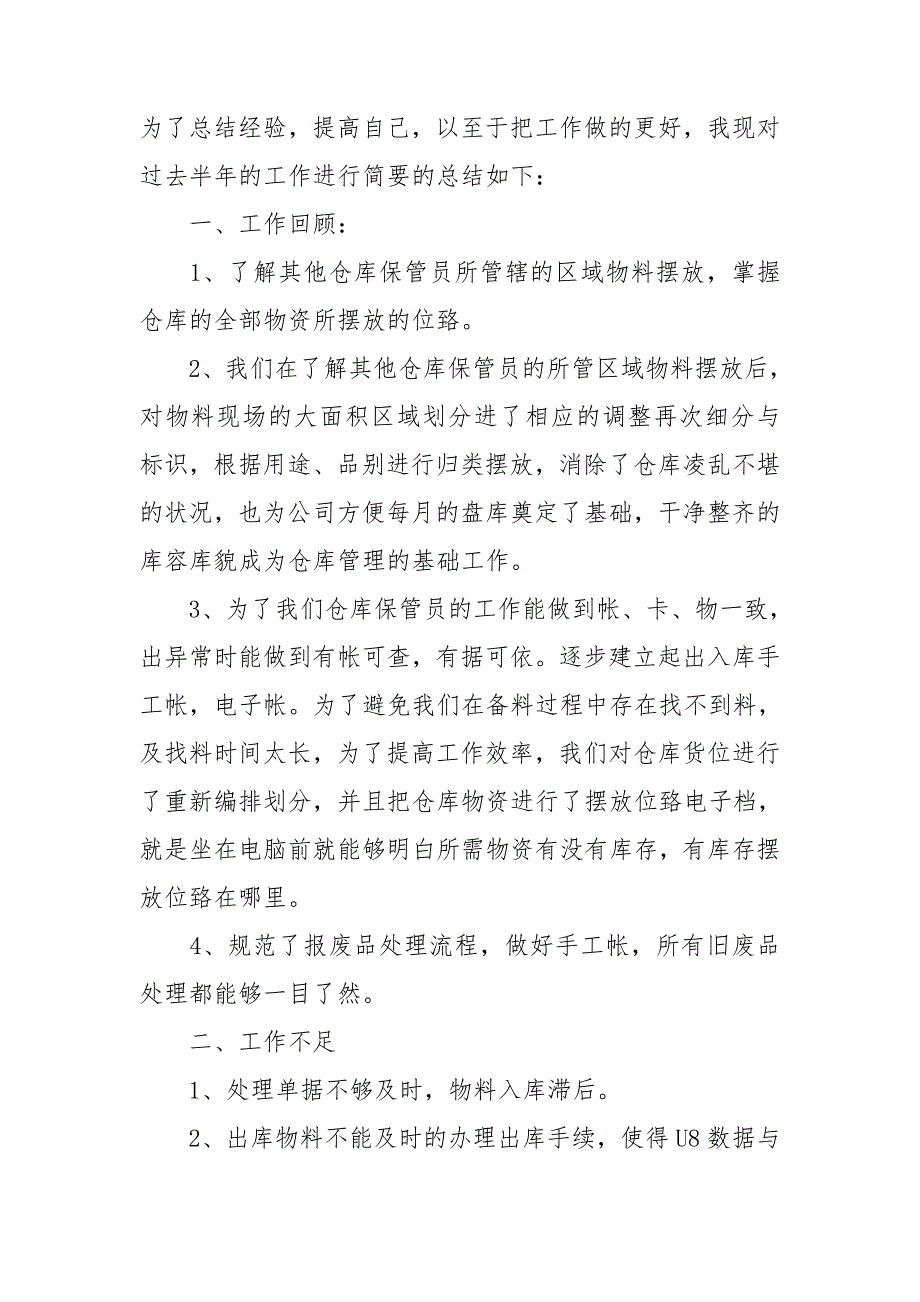 为了总结经验，提高自己，以至于把工作做的更好，我现对
过去半年的工作进行简要的总结如下：
一、工作回顾：
1、了解其他仓库保管员所管辖的区域物料摆放，掌握
仓库的全部物资所摆放的位臵。
2、我们在了解其他仓库保管员的所管区域物料摆放后，
对物料现场的大面积区域划分进了相应的调整再次细分与
标识，根据用途、品别进行归类摆放，消除了仓库凌乱不堪
的状况，也为公司方便每月的盘库奠定了基础，干净整齐的
库容库貌成为仓库管理的基础工作。
3、为了我们仓库保管员的工作能做到帐、卡、物一致，
出异常时能做到有帐可查，有据可依。逐步建立起出入库手
工帐，电子帐。为了避免我们在备料过程中存在找不到料，
及找料时间太长，为了提高工作效率，我们对仓库货位进行
了重新编排划分，并且把仓库物资进行了摆放位臵电子档，
就是坐在电脑前就能够明白所需物资有没有库存，有库存摆
放位臵在哪里。
4、规范了报废品处理流程，做好手工帐，所有旧废品
处理都能够一目了然。
二、工作不足
1、处理单据不够及时，物料入库滞后。
2、出库物料不能及时的办理出库手续，使得 U8 数据与